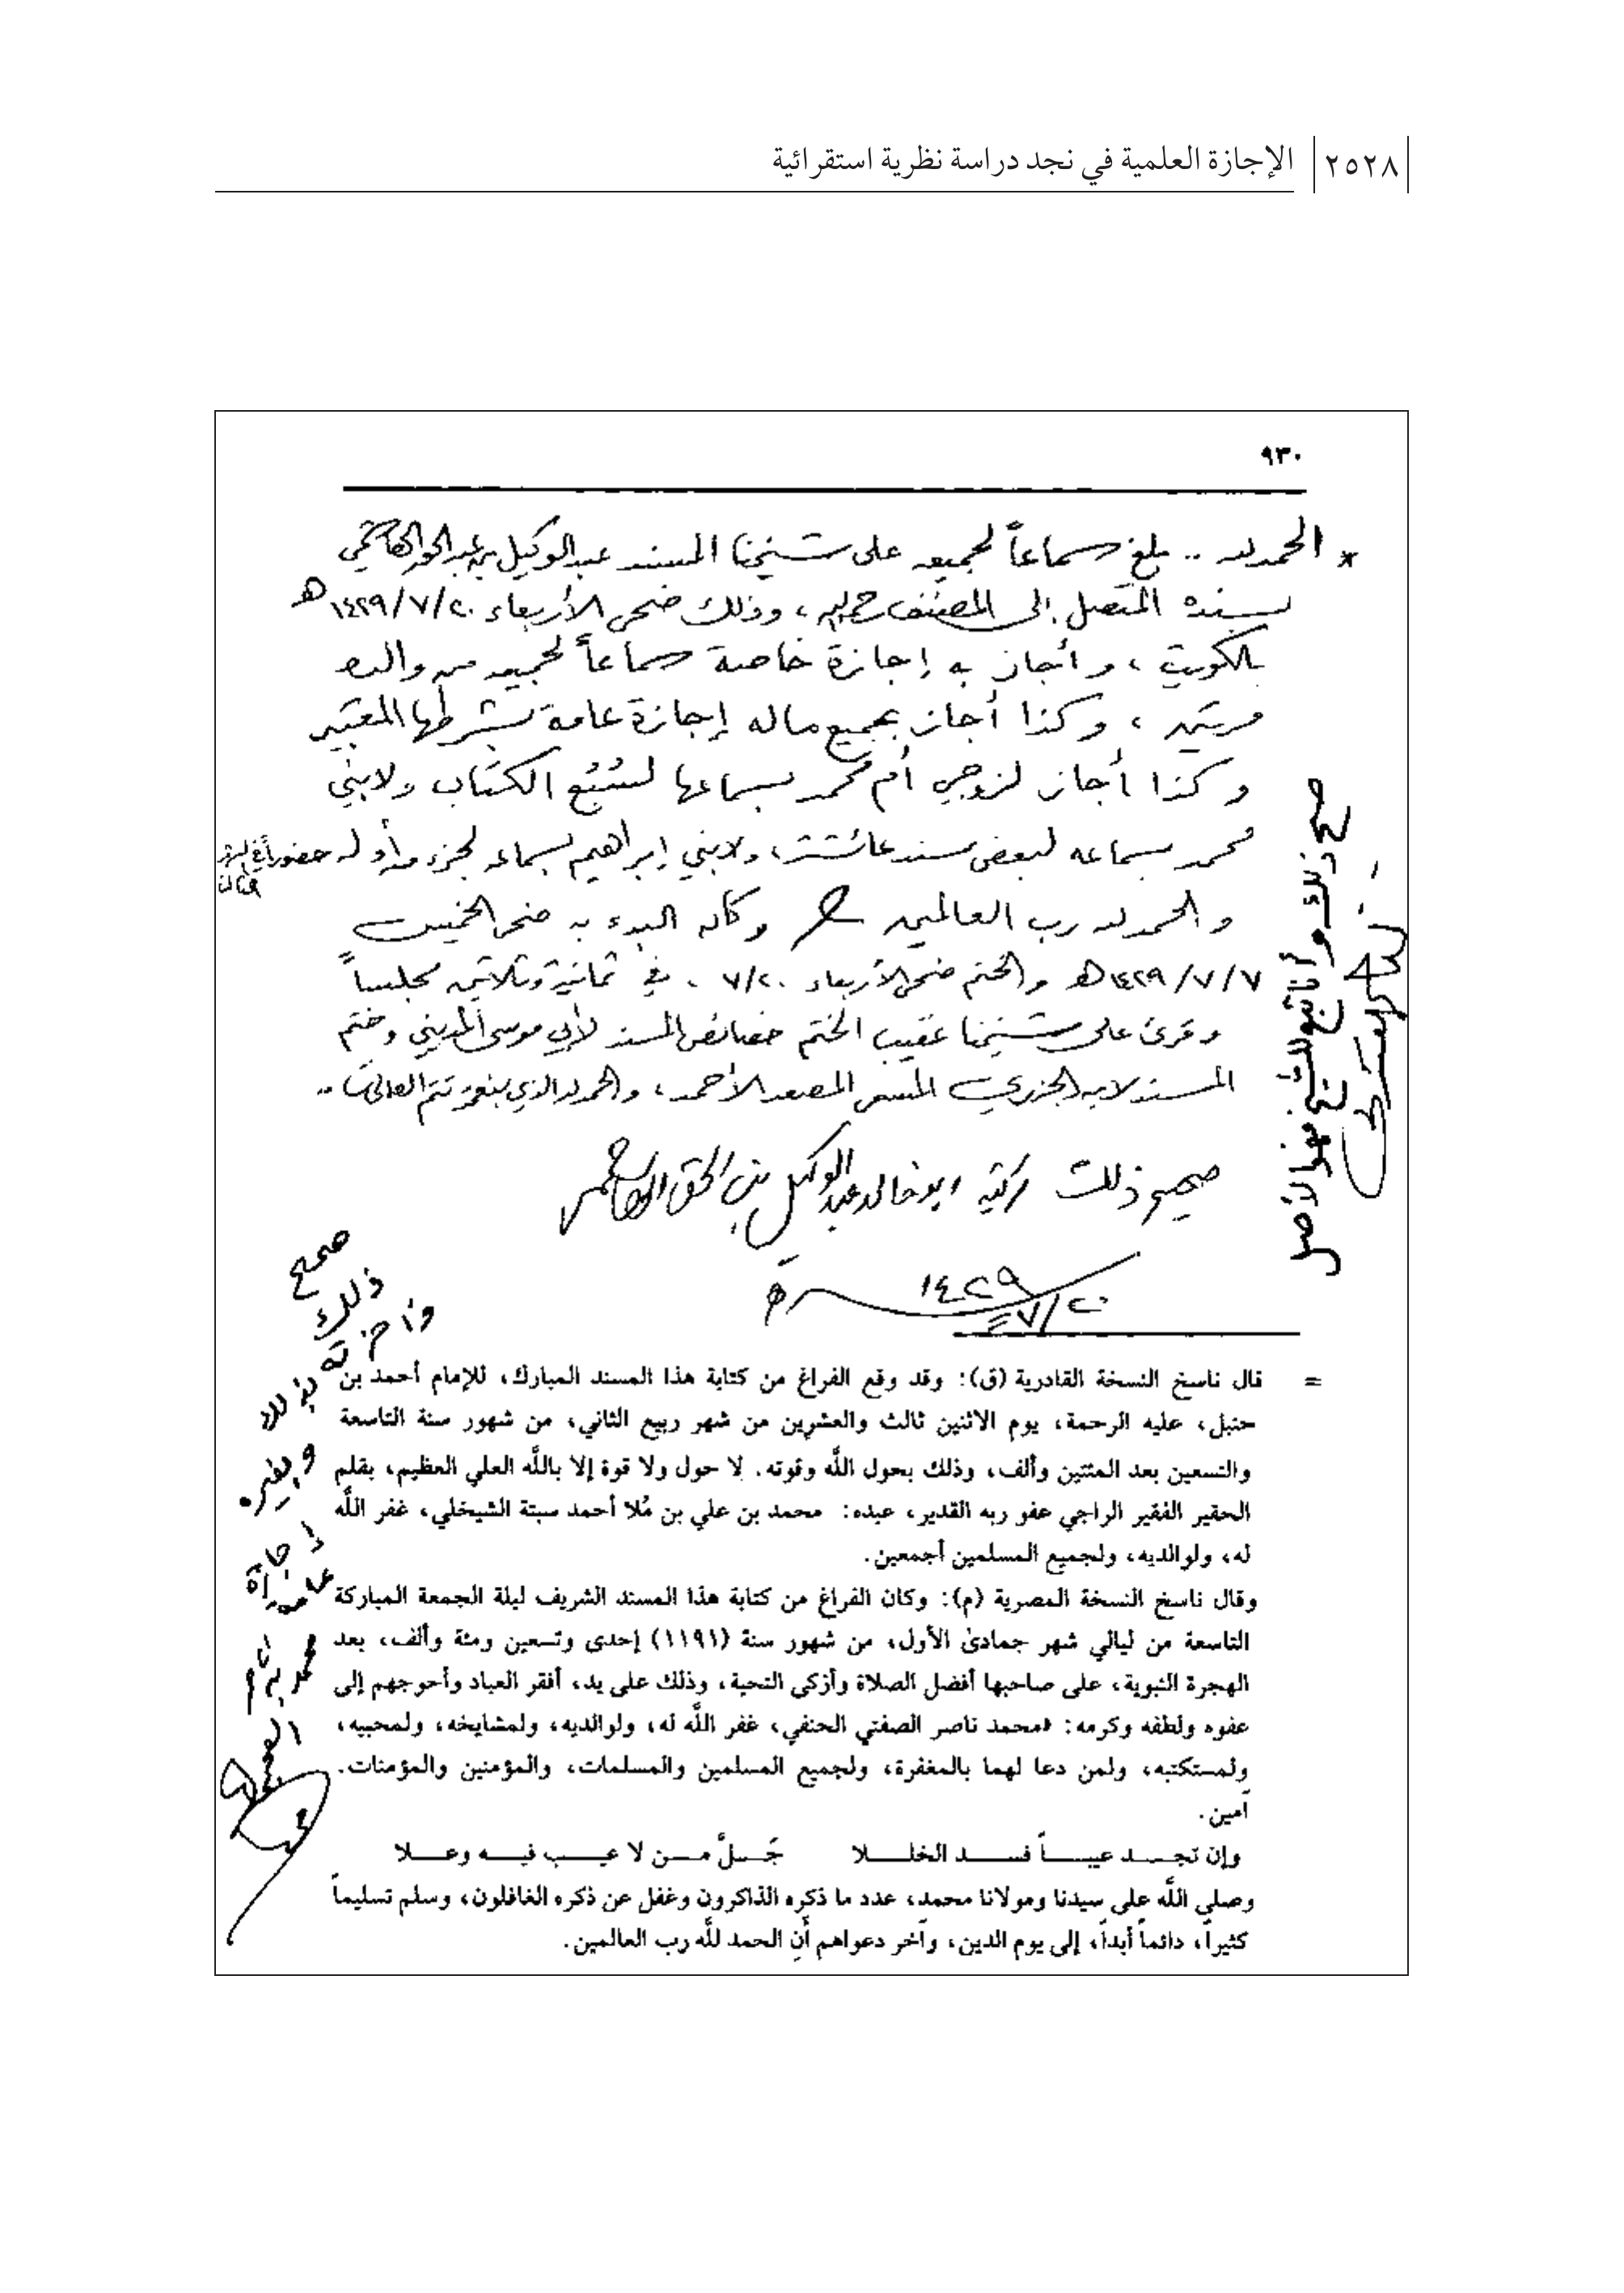 ٢٥٢٨ الإجازة العلمية في نجد دراسة نظرية استقرائية
٩٣٠
* الحمد لله .. بلغ سماعاً لجميعه على شيخنا المسند عبد الوكيل بن عبد الحق الهاشمي
بسنده المتصل إلى المصنف رحمه الله، وذلك ضحى الأربعاء ١٤٢٩/٧/٢٠ هـ
بالكويت، وأجاز به إجازة خاصة سماعاً لجميعه من والده
مرتين، وكذا أجاز بجميع ماله إجازة عامة بشرطها المعتبر
وكذا أجاز لزوجي أم محمد بسماعها لتُسُع الكتاب ولابني
محمد بسماعه لبعض مسند عائشة، ولابني إبراهيم بسماعه لجزء من أوله حضوراً في
والحمد لله رب العالمين وكان البدء به ضحى الخميس
١٤٢٩/٧/٧ هـ والختم ضحى الأربعاء ٧/٢٠ . في ثمانية وثلاثين مجلساً
وقرئ على شيخنا عقيب الختم خصائص المسند لأبي موسى المديني وختم
المسند لابن الجزري المسمى المصعد الأحمد، والحمد لله الذي بنعمته تتم الصالحات ..
صحيح ذلك وكتبه ابو خالد عبد الوكيل بن عبد الحق الهاشمي
١٤٢٩
٧/٢٠
صح ذلك وأنا تبع للشيخ فهو الأصل
صحيح
ذلك
وأجزته
بذلك
وبغيره
إجازة
عامة
محمد
= قال ناسخ النسخة القادرية (ق): وقد وقع الفراغ من كتابة هذا المسند المبارك، للإمام أحمد بن
حنبل، عليه الرحمة، يوم الاثنين ثالث والعشرين من شهر ربيع الثاني، من شهور سنة التاسعة
والتسعين بعد المئتين وألف، وذلك بحول اللَّه وقوته. لا حول ولا قوة إلا باللَّه العلي العظيم، بقلم
الحقير الفقير الراجي عفو ربه القدير، عبده: محمد بن علي بن مُلا أحمد سبتة الشيخلي، غفر اللَّه
له، ولوالديه، ولجميع المسلمين أجمعين.
وقال ناسخ النسخة المصرية (م): وكان الفراغ من كتابة هذا المسند الشريف ليلة الجمعة المباركة
التاسعة من ليالي شهر جمادى الأول، من شهور سنة (١١٩١) إحدى وتسعين ومئة وألف، بعد
الهجرة النبوية، على صاحبها أفضل الصلاة وأزكى التحية، وذلك على يد، أفقر العباد وأحوجهم إلى
عفوه ولطفه وكرمه: «محمد ناصر الصفتي الحنفي، غفر اللَّه له، ولوالديه، ولمشايخه، ولمحبيه،
ولمستكتبه، ولمن دعا لهما بالمغفرة، ولجميع المسلمين والمسلمات، والمؤمنين والمؤمنات.
آمين.
وإن تجد عيباً فسد الخللا جَلَّ من لا عيب فيه وعلا
وصلى اللَّه على سيدنا ومولانا محمد، عدد ما ذكره الذاكرون وغفل عن ذكره الغافلون، وسلم تسليماً
كثيراً، دائماً أبداً، إلى يوم الدين، وآخر دعواهم أن الحمد للَّه رب العالمين.